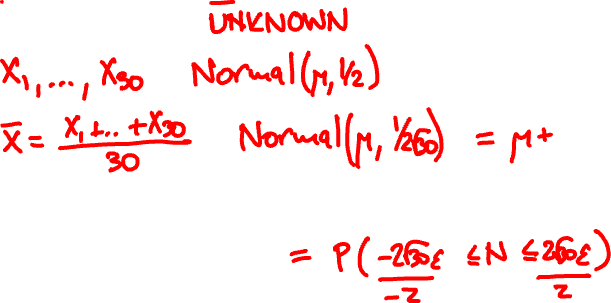 UNKNOWN
X₁,..., X₃₀ Normal(μ, 1/2)
X̄ = X₁+..+X₃₀ / 30 Normal(μ, 1/2√30) = μ+
= P( -2√30ε / -z ≤ N ≤ 2√30ε / z )